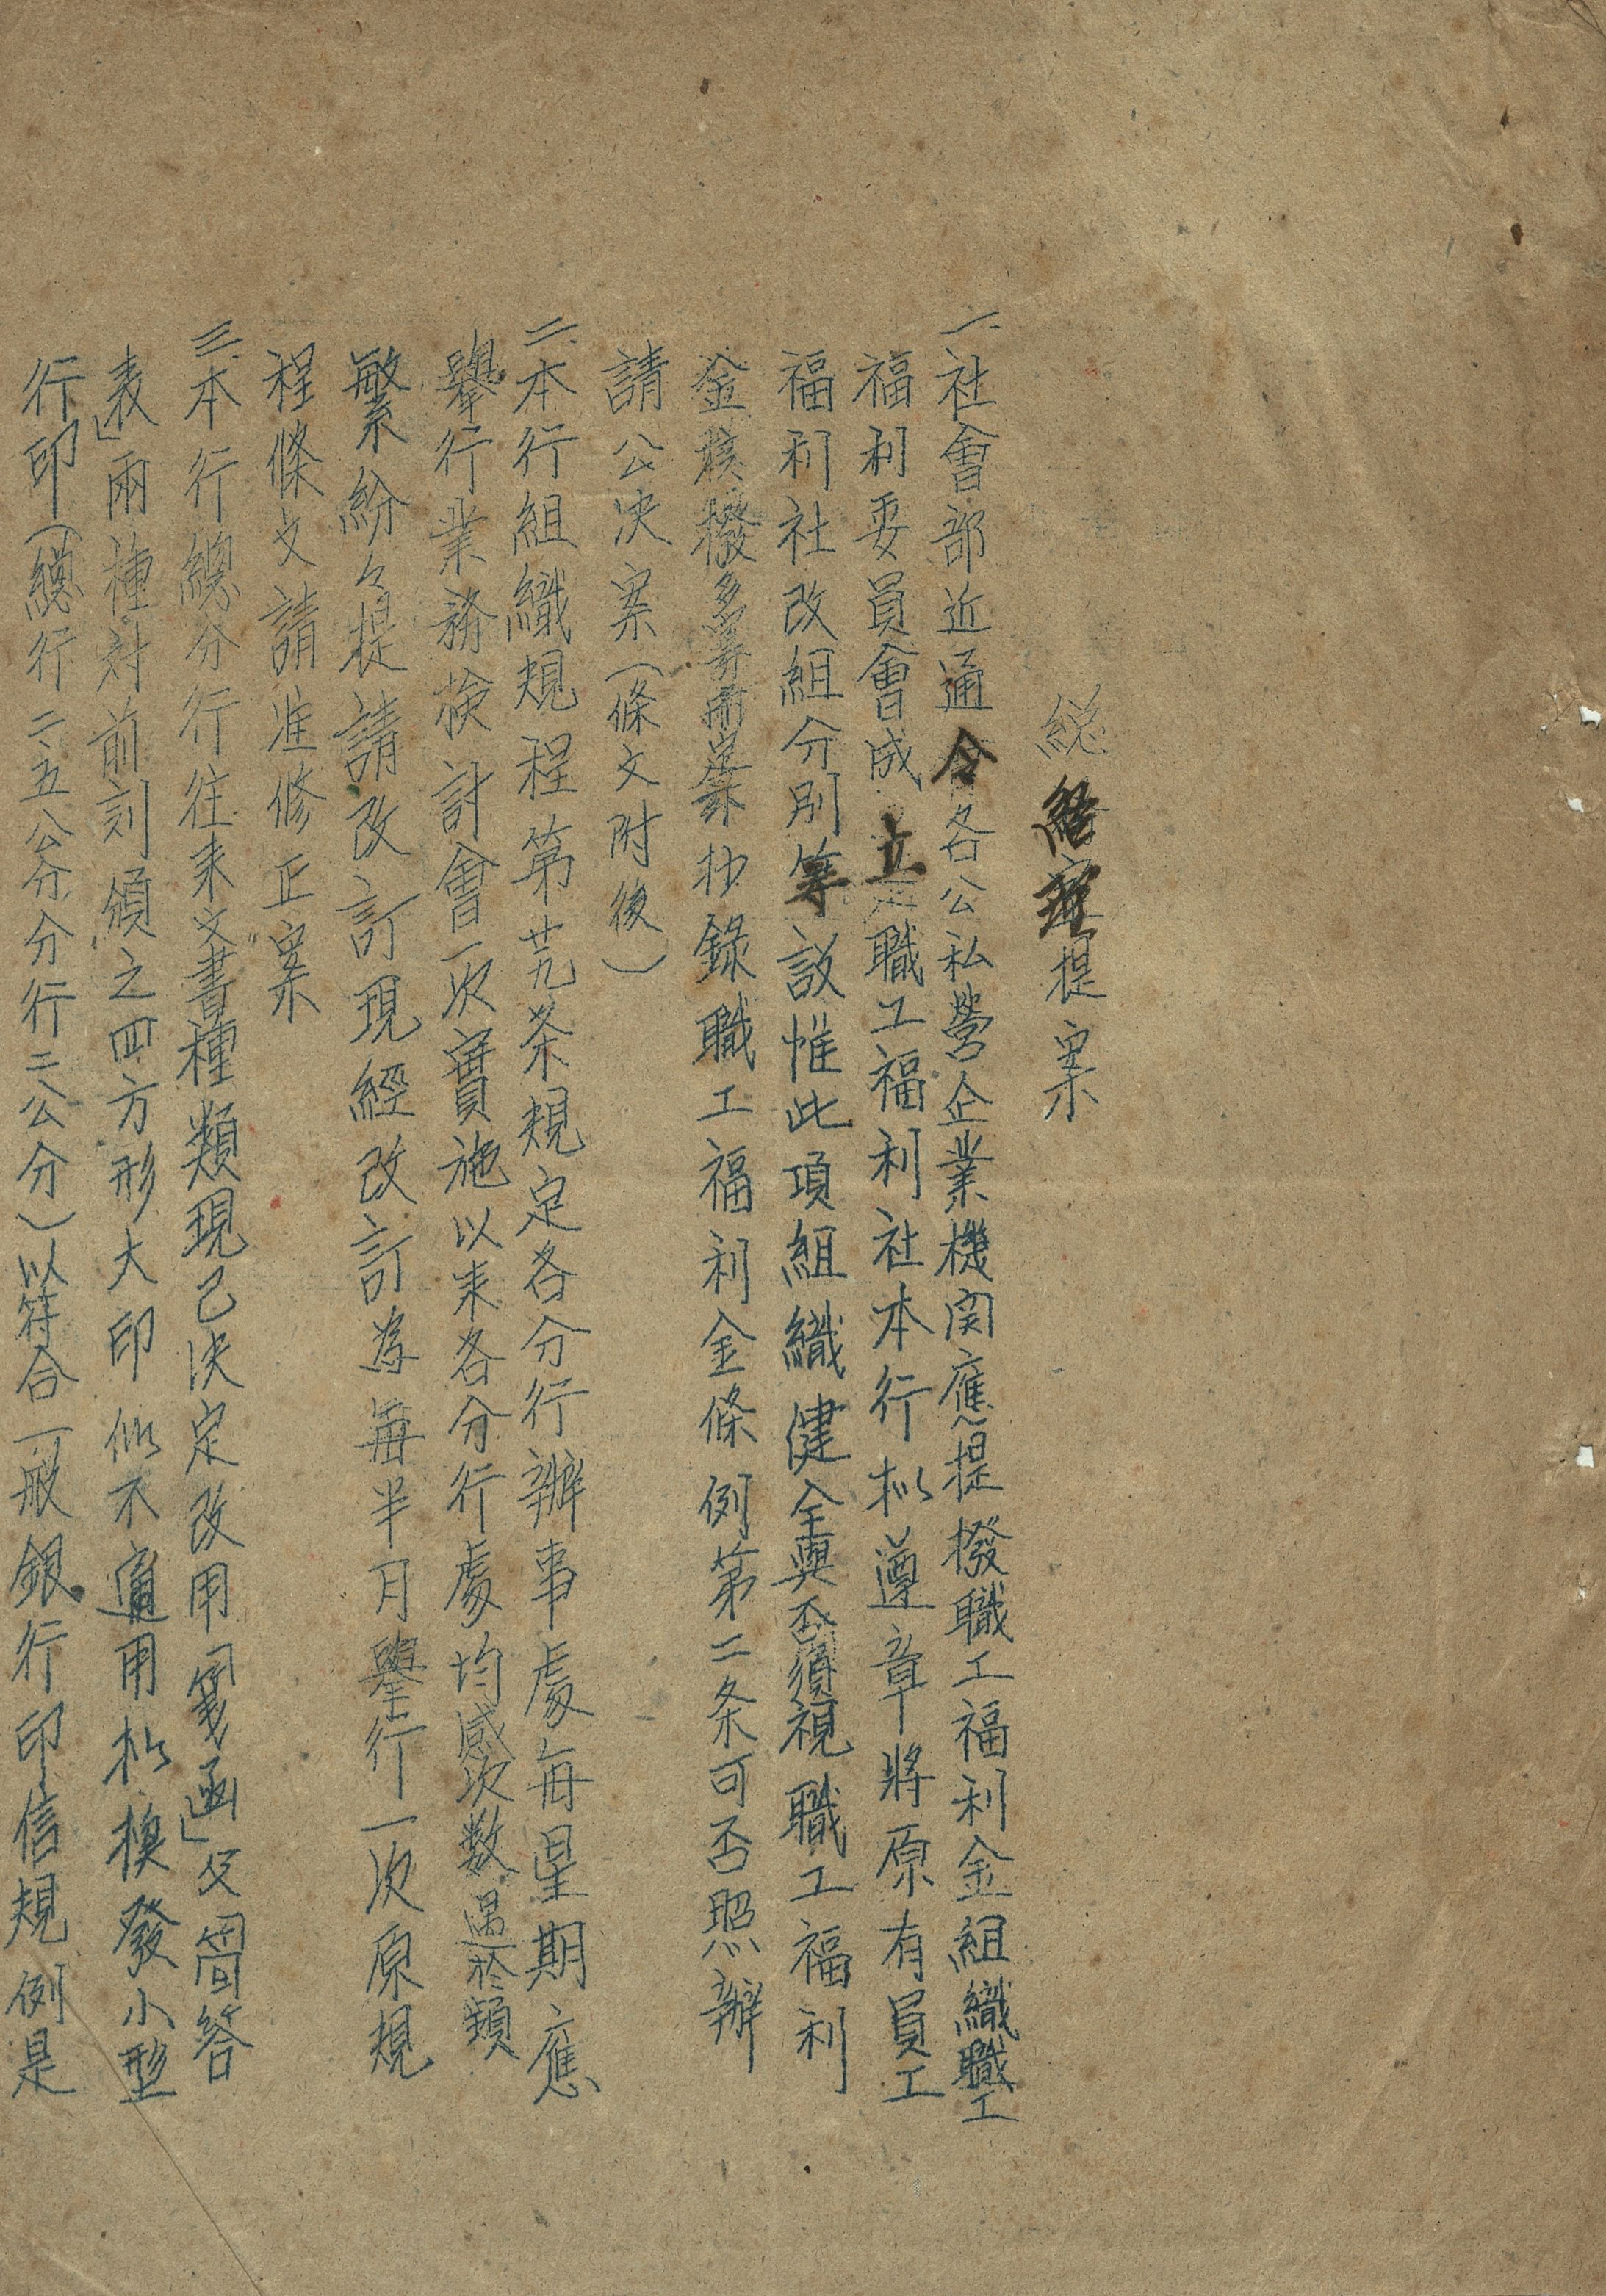 總經理提案
一、社會部近通令各公私營企業機関應提撥職工福利金組織職工
福利委員會成立職工福利社本行拟遵章將原有員工
福利社改組分別籌設惟此項組織健全與否須視職工福利
金核撥多寡而定茲抄錄職工福利金條例第二条可否照辦
請公決案（條文附後）
二、本行組織規程第廿九条規定各分行辦事處每星期應
舉行業務檢討會一次實施以来各分行處均感次数過於頻
繁紛々提請改訂現經改訂為每半月舉行一次原規
程條文請准修正案
三、本行總分行往来文書種類現已决定改用「箋函」及「簡答
表」兩種对前刻頒之四方形大印似不適用拟換發小型
行印（總行二.五公分分行二公分）以符合一般銀行印信規例是